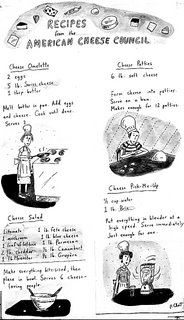 RECIPES
from the
AMERICAN CHEESE COUNCIL
Cheese Omelette
2 eggs
5 lb. Swiss cheese
1 tbsp butter
Melt butter in pan. Add eggs
and cheese. Cook until done.
Serves 1.
Cheese Salad
1 tomato
1 mushroom
1 lb feta cheese
1 lb blue cheese
1 lb Parmesan
1 lb cheddar
1 lb Camembert
1 lb Muenster
1 lb Gruyère
Make everything bite-sized, then
place in bowl. Serves 6 cheese-
loving people.
Cheese Patties
6 lb. soft cheese
Form cheese into patties.
Serve on a bun.
Makes enough for 12 patties.
Cheese Pick-Me-Up
½ cup water
1 lb. Brie
Put everything in blender at a
high speed. Serve immediately.
Just enough for one.
R. Chast